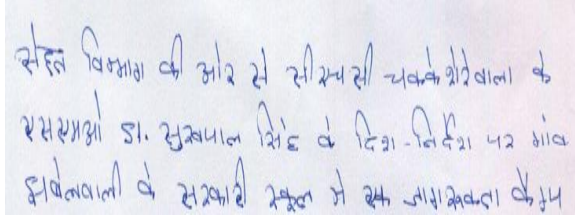 सेहत विभाग की ओर से सीएचसी चक्कशेरेवाला के
एसएमओ डा. सुखपाल सिंह के दिशा-निर्देश पर गांव
झबेलवाली के सरकारी स्कूल मे एक जागरूकता कैम्प